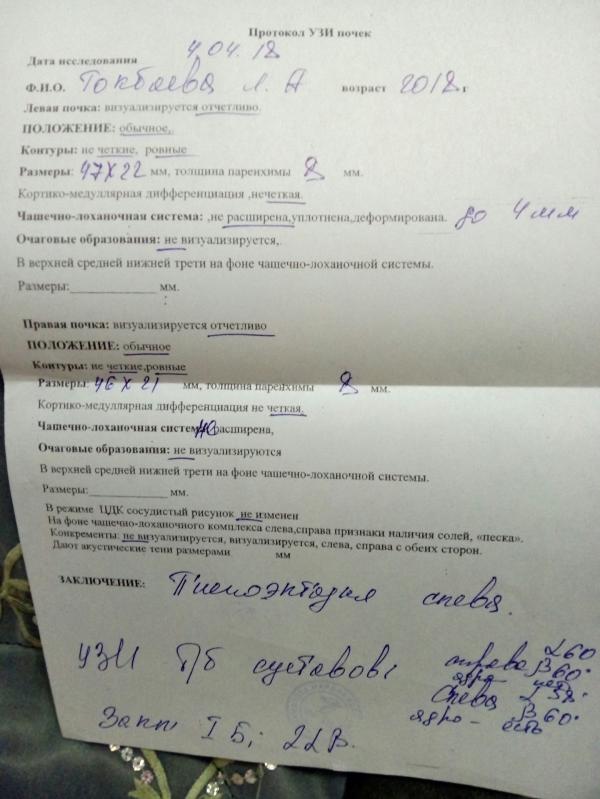 Протокол УЗИ почек
Дата исследования 4.04.18
Ф.И.О. Токбаева Л. А возраст 2018 г
Левая почка: визуализируется отчетливо.
ПОЛОЖЕНИЕ: обычное,
Контуры: не четкие, ровные
Размеры: 47х22 мм, толщина паренхимы 8 мм.
Кортико-медуллярная дифференциация ,нечеткая.
Чашечно-лоханочная система: ,не расширена,уплотнена,деформирована. до 4 мм
Очаговые образования: не визуализируется,.
В верхней средней нижней трети на фоне чашечно-лоханочной системы.
Размеры:____________ мм.
Правая почка: визуализируется отчетливо
ПОЛОЖЕНИЕ: обычное
Контуры: не четкие,ровные
Размеры: 46 х 21 мм, толщина паренхимы 8 мм.
Кортико-медуллярная дифференциация не четкая.
Чашечно-лоханочная система не расширена,
Очаговые образования: не визуализируются
В верхней средней нижней трети на фоне чашечно-лоханочной системы.
Размеры:____________ мм.
В режиме ЦДК сосудистый рисунок не изменен
На фоне чашечно-лоханочного комплекса слева,справа признаки наличия солей, «песка».
Конкременты: не визуализируется, визуализируется, слева, справа с обеих сторон.
Дают акустические тени размерами мм
ЗАКЛЮЧЕНИЕ: Пиелоэктазия слева.
УЗИ Т/б суставов:
справа α60
β60°
ядро – нет
Слева
β60°
ядро – есть
Закл I Б; 2